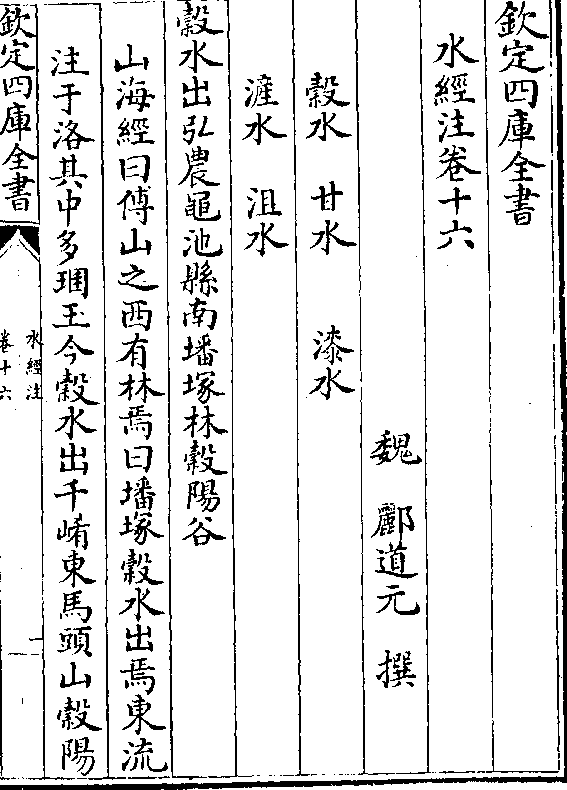 欽定四庫全書
水經注卷十六
魏 酈道元 撰
穀水 甘水 漆水
滻水 沮水
穀水出弘農黽池縣南墦塚林穀陽谷
山海經曰傅山之西有林焉曰墦塚穀水出焉東流
注于洛其中多珚玉今穀水出千崤東馬頭山穀陽
欽定四庫全書
水經注
卷十六
一